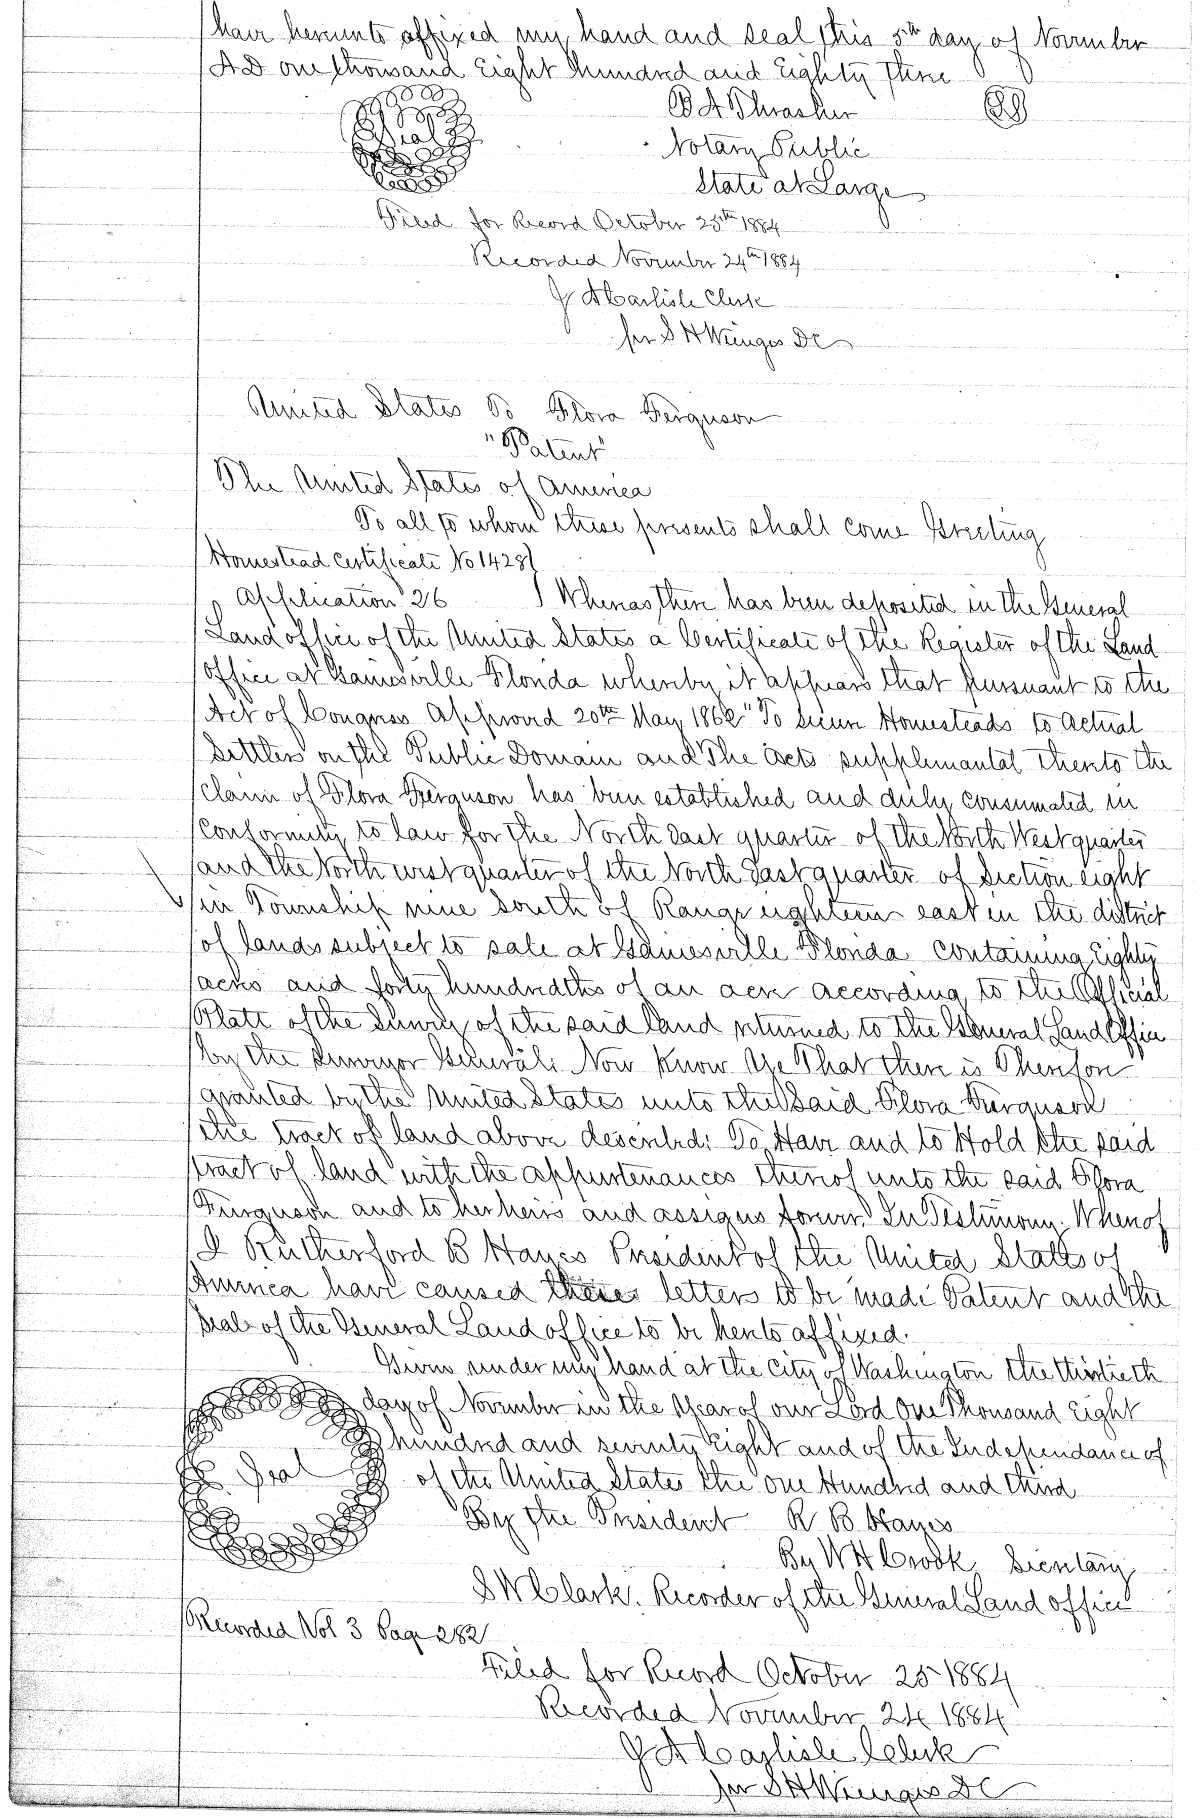 have hereunto affixed my hand and seal this 5th day of November
A D one thousand Eight hundred and Eighty three
Seal
B A Thrasher
Notary Public
State at Large
Filed for Record October 25th 1884
Recorded November 24th 1884
J A Carlisle Clerk
per S H Wienges DC
United States To Flora Ferguson
"Patent"
The United States of America
To all to whom these presents shall come Greeting
Homestead Certificate No 1428
Application 26 } Whereas there has been deposited in the General
Land office of the United States a Certificate of the Register of the Land
office at Gainesville Florida whereby it appears that pursuant to the
Act of Congress Approved 20th May 1862 "To secure Homesteads to actual
Settlers on the Public Domain and The acts supplimental thereto the
Claim of Flora Ferguson has been established and duly consumated in
conformity to law for the North East quarter of the North West quarter
and the North west quarter of the North East quarter of Section eight
in Township nine South of Range eighteen east in the district
of lands subject to sale at Gainesville Florida containing Eighty
acres and forty hundredths of an acre according to the Official
Platt of the Survey of the said land returned to the General Land Office
by the Surveyor General: Now Know Ye That there is Therefore
granted by the United States unto the Said Flora Ferguson
the tract of land above described: To Have and to Hold the said
tract of land with the appurtenances thereof unto the said Flora
Ferguson and to her heirs and assigns forever. In Testimony Whereof
I Rutherford B Hayes President of the United States of
America have caused these letters to be made Patent and the
Seal of the General Land office to be hereto affixed.
Given under my hand at the City of Washington the thirtieth
day of November in the Year of our Lord One Thousand Eight
hundred and seventy Eight and of the Independance of
Seal of the United States the one Hundred and third
By the President R B Hayes
By W H Crook Secretary
S W Clark. Recorder of the General Land office
Recorded Vol 3 Page 282
Filed for Record October 25 1884
Recorded November 24 1884
J A Carlisle Clerk
per S H Wienges DC